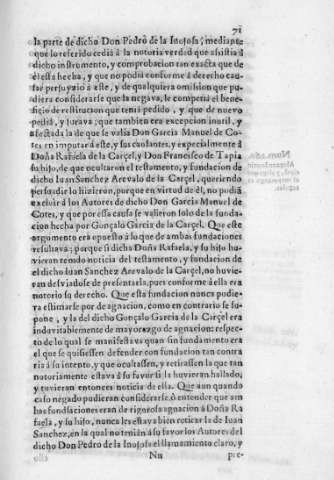 71
la parte de dicho Don Pedro de la Inojosa; mediante
que lo referido cedia à la notoria verdad que asistia à
dicho instrumento, y comprobacion tan exacta que de
èl està hecha, y que no podia conforme à derecho cau-
sar perjuyzio à este, y de qualquiera omision que pu-
diera considerarse que la negava, le competia el bene-
ficio de restitucion que tenia pedido, y que de nuevo
pedia, y jurava; que tambien era excepcion inutil, y
afectada la de que se valia Don Garcia Manuel de Co-
tes en imputar à este, y sus causantes, y especialmente à
Doña Rafaela de la Carçel, y Don Francisco de Tapia
su hijo, de que ocultaron el testamento, y fundacion de
dicho Iuan Sanchez Arevalo de la Carçel, queriendo
persuadir lo hizieron, porque en virtud de èl, no podia
excluir à los Autores de dicho Don Garcia Manuel de
Cotes, y que por essa causa se valieron solo de la funda-
cion hecha por Gonçalo Garcia de la Carçel. Que este
argumento era opuesto à lo que de ambas fundaciones
resultava; porque si dicha Doña Rafaela, y su hijo hu-
vieran tenido noticia del testamento, y fundacion de
el dicho Iuan Sanchez Arevalo de la Carçel, no huvie-
ran desviadose de presentarla, pues conforme à ella era
notorio su derecho. Que esta fundacion nunca podie-
ra estimarse por de agnacion, como en contrario se su-
pone, y la del dicho Gonçalo Garcia de la Carçel era
indubitablemente de mayorazgo de agnacion: respec-
to de lo qual se manifestava quan sin fundamento era
el que se quisiessen defender con fundacion tan contra-
ria à su intento, y que ocultassen, y retirassen la que tan
notoriamente estava à su favor si la huvieran hallado,
y tuvieran entonces noticia de ella. Que aun quando
caso negado pudieran considerarse ò entender que am-
bas fundaciones eran de rigorosa agnacion à Doña Ra-
faela, y su hijo, nunca les estava bien retirar la de Iuan
Sanchez, en la qual tenian à su favor los Autores del
dicho Don Pedro de la Inojosa el llamamiento claro, y
Nn pre-